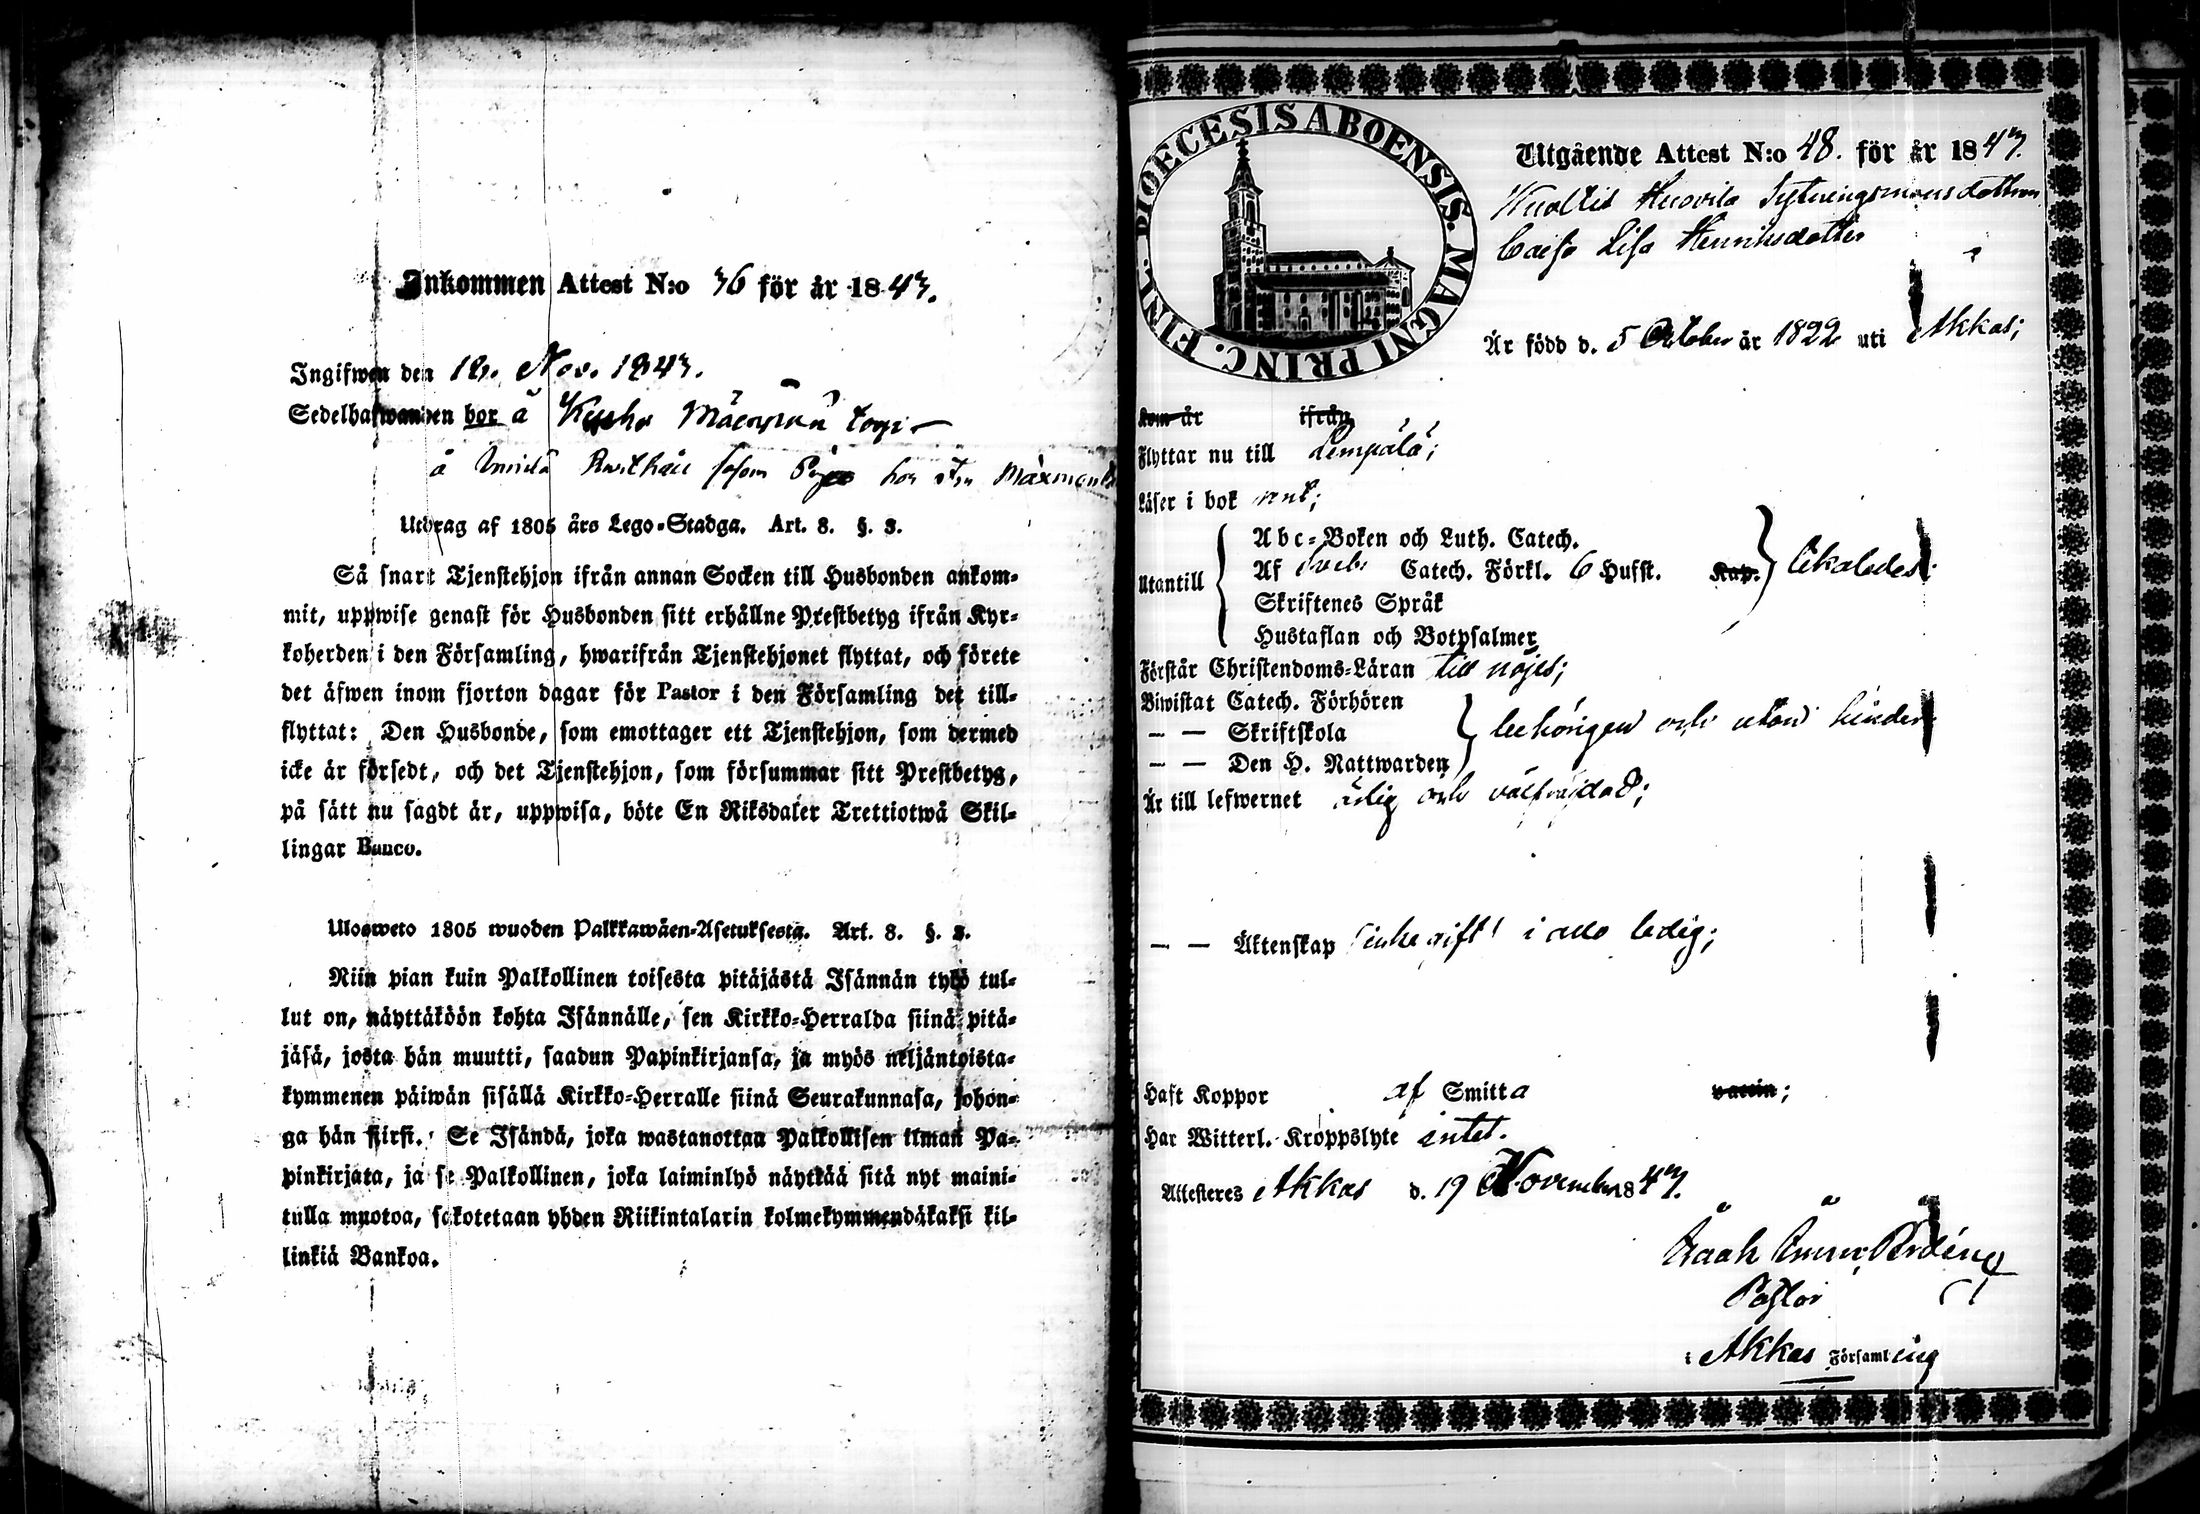 Inkommen Attest N:o 36 för år 1843.
Ingifwen den 18. Nov. 1843.
Sedelhafwanden bor å
å
Utdrag af 1805 års Lego-Stadga. Art. 8. §. 3.
Så snart Tjenstehjon ifrån annan Socken till Husbonden ankom-
mit, uppwise genast för Husbonden sitt erhållne Prestbetyg ifrån Kyr-
koherden i den Församling, hwarifrån Tjenstehjonet flyttat, och förete
det äfwen inom fjorton dagar för Pastor i den Församling det till-
flyttat: Den Husbonde, som emottager ett Tjenstehjon, som dermed
icke är försedt, och det Tjenstehjon, som försummar sitt Prestbetyg,
på sätt nu sagdt är, uppwisa, böte En Riksdaler Trettiotwå Skil-
lingar Banco.
Ulosweto 1805 wuoden Palkkawäen-Asetuksesta. Art. 8. §. 3.
Niin pian kuin Palkollinen toisesta pitäjästä Isännän tykö tul-
lut on, näyttäköön kohta Isännälle, sen Kirkko-Herralda siinä pitä-
jäsä, josta hän muutti, saadun Papinkirjansa, ja myös neljäntoista-
kymmenen päiwän sisällä Kirkko-Herralle siinä Seurakunnasa, johon-
ga hän siirsi. Se Isändä, joka wastanottaa Palkollisen ilman Pa-
pinkirjata, ja se Palkollinen, joka laiminlyö näyttää sitä nyt maini-
tulla muotoa, sakotetaan yhden Riikintalarin kolmekymmendäkaksi kil-
linkiä Bankoa.
DIOECESIS ABOENSIS. MAGNI PRINC. FINL.
Utgående Attest N:o 48. för år 1843.
Huovila Sytningsmansdottren
Caisa Lisa Henriksdotter
Är född d. 5 October år 1822 uti Akkas;
Kom år ifrån
Flyttar nu till Lempälä;
Läser i bok rent;
Utantill
Abc-Boken och Luth. Catech.
Af Sveb. Catech. Förkl. 6 Hufst. Kap. likaledes;
Skriftenes Språk
Hustaflan och Botpsalmer
Förstår Christendoms-Läran till nöjes;
Biwistat Catech. Förhören
— — Skriftskola behörigen och utan hinder;
— — Den H. Nattwarden
Är till lefwernet ärlig och välfrejdad;
— — Äktenskap icke gift i allo ledig;
Haft Koppor af Smitta vaccin;
Har Witterl. Kroppslyte intet.
Attesteres Akkas d. 19 November 1843.
Pastor
i Akkas Församling